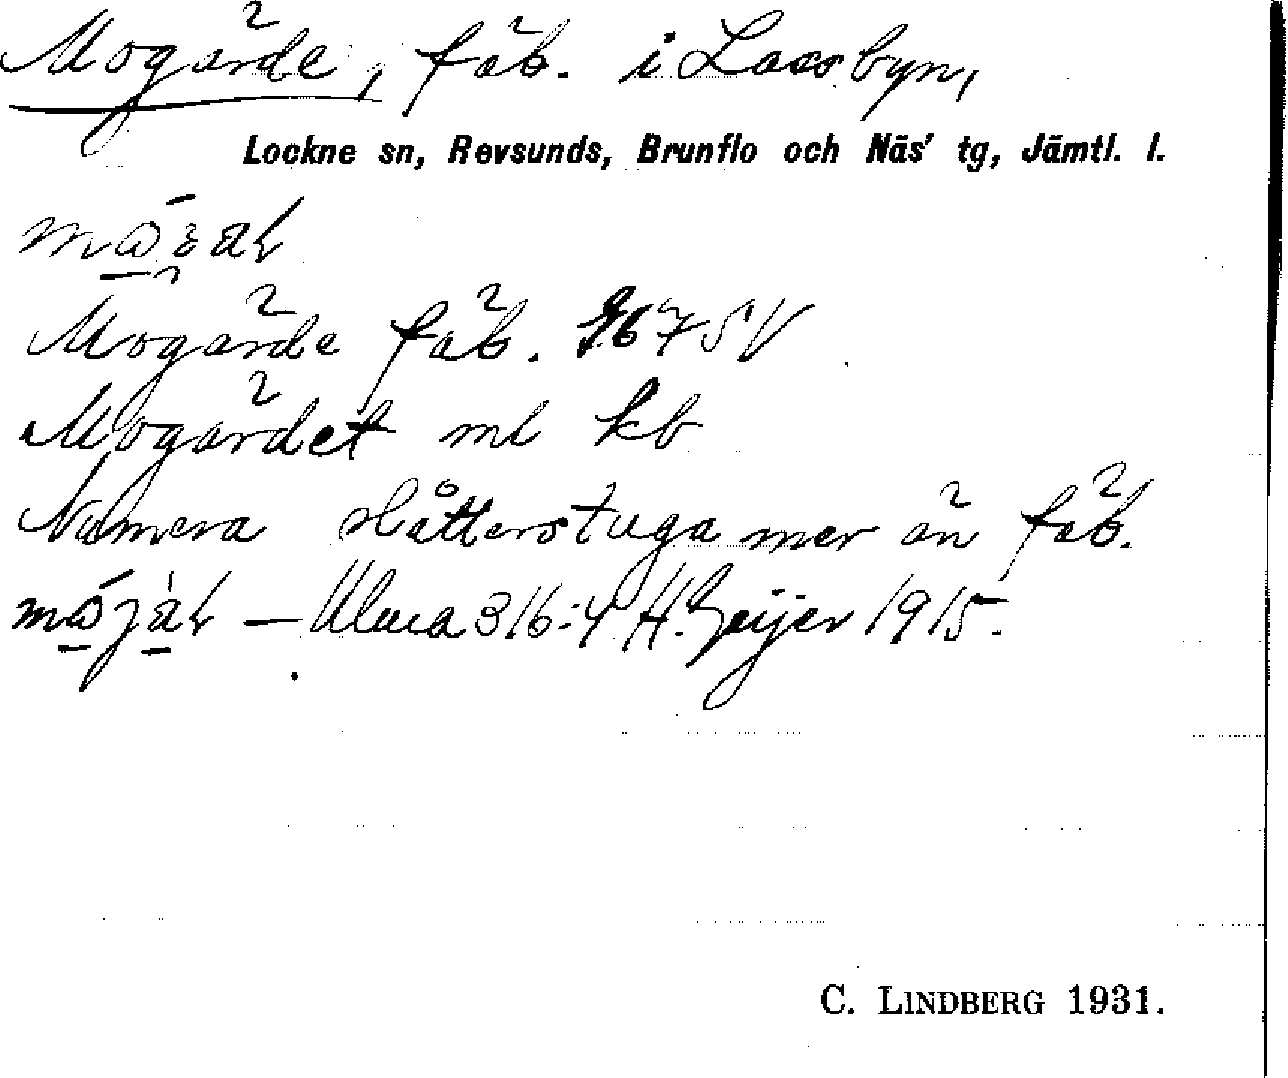 Mogärde, fäb. i Loosbyn,
Lockne sn, Revsunds, Brunflo och Näs' tg, Jämtl. l.
Mogärde fäb. 967 SV
Mogärdet ml kb
Numera slåtterstuga mer än fäb.
— Ulma 316:4 H. Geijer 1915.
C. LINDBERG 1931.